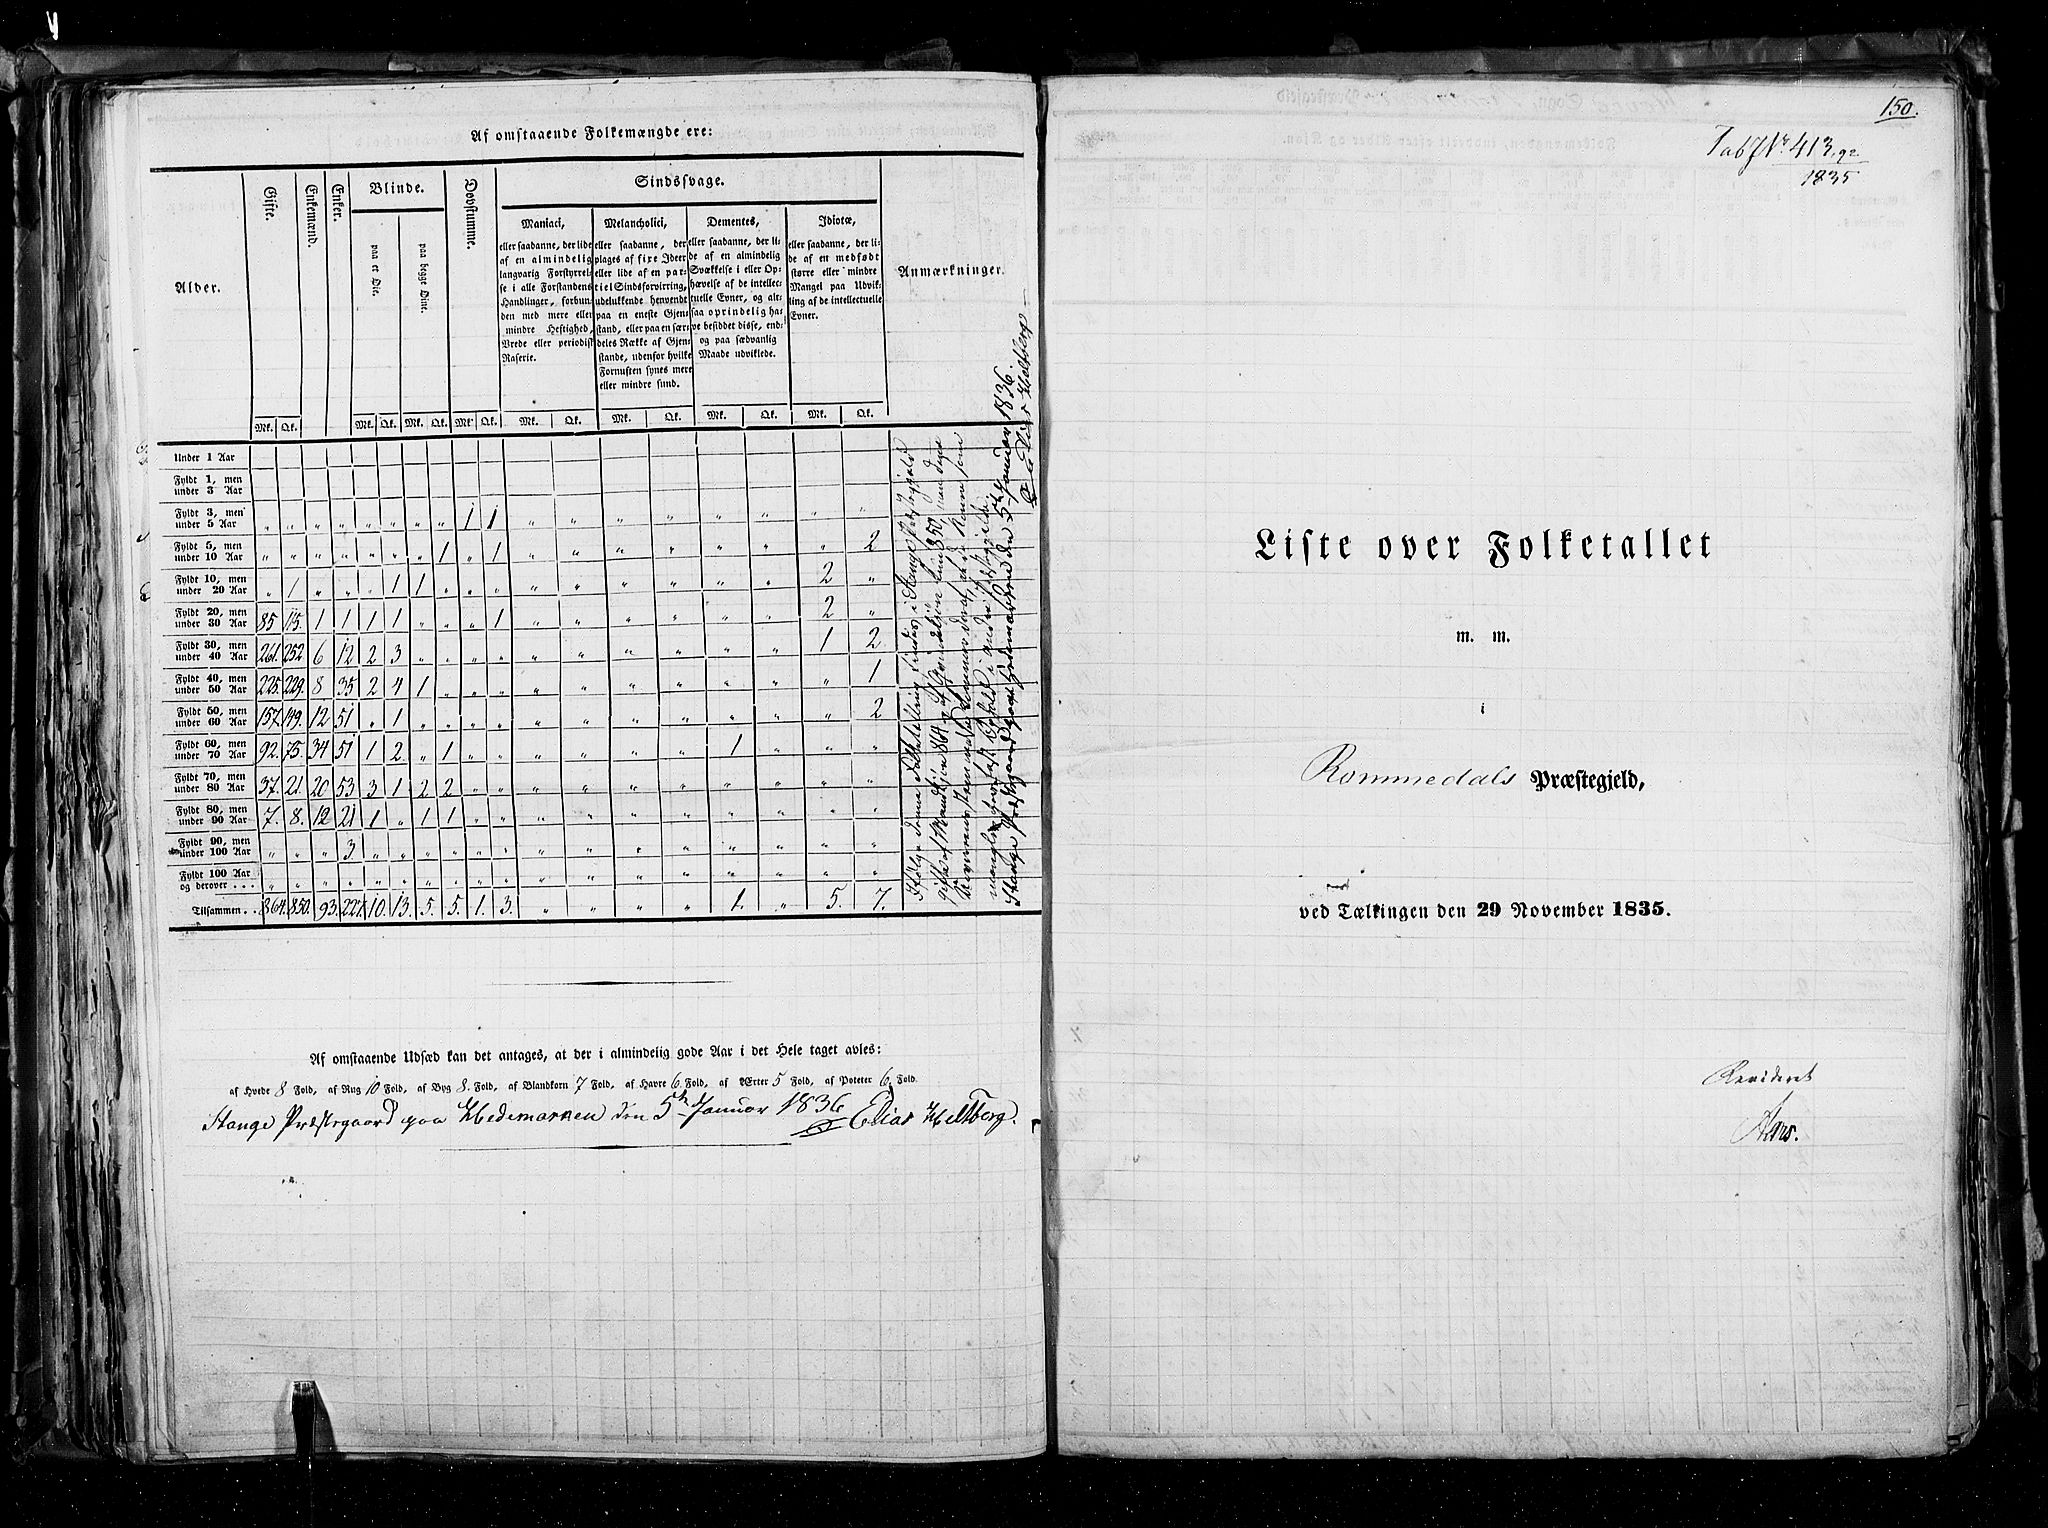 Af omstaaende Folkemængde ere:
Alder.
Gifte.
Enkemænd.
Enker.
Blinde.
paa et Øie.
paa begge Øine.
Døvstumme.
Sindssvage.
Maniaci,
eller saadanne, der lide
af en almindelig
langvarig Forstyrrel-
se i alle Forstandens
Handlinger, forbun-
den med mere eller
mindre Heftighed,
Vrede eller periodisk
Raserie.
Melancholici,
eller saadanne, der
plages af fixe Ideer
eller lide af en par-
tiel Sindsforvirring,
udelukkende henvendt
paa en eneste Gjen-
stand, eller paa en sær-
deles Række af Gjen-
stande, udenfor hvilke
Fornuften synes mere
eller mindre sund.
Dementes,
eller saadanne, der li-
de af en almindelig
Svækkelse i eller Op-
hævelse af de intellec-
tuelle Evner, og al-
saa oprindelig ha-
ve besiddet disse, end-
og paa sædvanlig
Maade udviklede.
Idiotæ,
eller saadanne, der li-
de af en medfødt
større eller mindre
Mangel paa Udvik-
ling af de intellectuelle
Evner.
Anmærkninger.
Mk. Qk. Mk. Qk. Mk. Qk. Mk. Qk. Mk. Qk. Mk. Qk. Mk. Qk. Mk. Qk.
Under 1 Aar
Fyldt 1, men
under 3 Aar
Fyldt 3, men
under 5 Aar " " " " " " " " 1 1 " " " " " " " "
Fyldt 5, men
under 10 Aar " " " " " " " 1 " 1 " " " " " " " 2
Fyldt 10, men
under 20 Aar " 1 " " " 1 1 " " " " " " " " " 2 "
Fyldt 20, men
under 30 Aar 85 115. 1 1 1 1 " " " 1 " " " " " " 2 "
Fyldt 30, men
under 40 Aar 261. 252 6 12 2 3 " " " " " " " " " " 1 2
Fyldt 40, men
under 50 Aar 225. 229. 8 35 2 4 1 " " " " " " " " " " 1
Fyldt 50, men
under 60 Aar 157. 149. 12 51 " 1 " " " " " " " " " " " 2
Fyldt 60, men
under 70 Aar 92. 75. 34 51 1 2 " 1 " " " " " " 1 " " "
Fyldt 70, men
under 80 Aar 37. 21. 20 53 3 1 2 2 " " " " " " " " " "
Fyldt 80, men
under 90 Aar 7. 8. 12 21 1 " 1 1 " " " " " " " " " "
Fyldt 90, men
under 100 Aar " " " 3 " " " " " " " " " " " " " "
Fyldt 100 Aar
og derover . . . " " " " " " " " " " " " " " " " " "
Tilsammen . . 864. 850. 93. 227. 10. 13. 5. 5. 1. 3. " " " " 1. " 5. 7.
Ifølge denne Folketælling findes i Stange Præstegjeld
gifte af Mandkjøn 864 og af Qvindekjøn kun 850,
Stange Præstegaard paa Hedemarken den 5te Januar 1836.
Elias Heltberg
Af omstaaende Udsæd kan det antages, at der i almindelig gode Aar i det Hele taget avles:
af Hvede 8 Fold, af Rug 10 Fold, af Byg 8. Fold, af Blandkorn 7 Fold, af Havre 6 Fold, af Ærter 5 Fold, af Poteter 6. Fold.
Stange Præstegaard paa Hedemarken den 5te Januar 1836 Elias Heltberg.
150.
Tab No 413.92
1835
Liste over Folketallet
m. m.
i
Rommedals Præstegjeld,
ved Tælkingen den 29 November 1835.
Revideret
Aars.